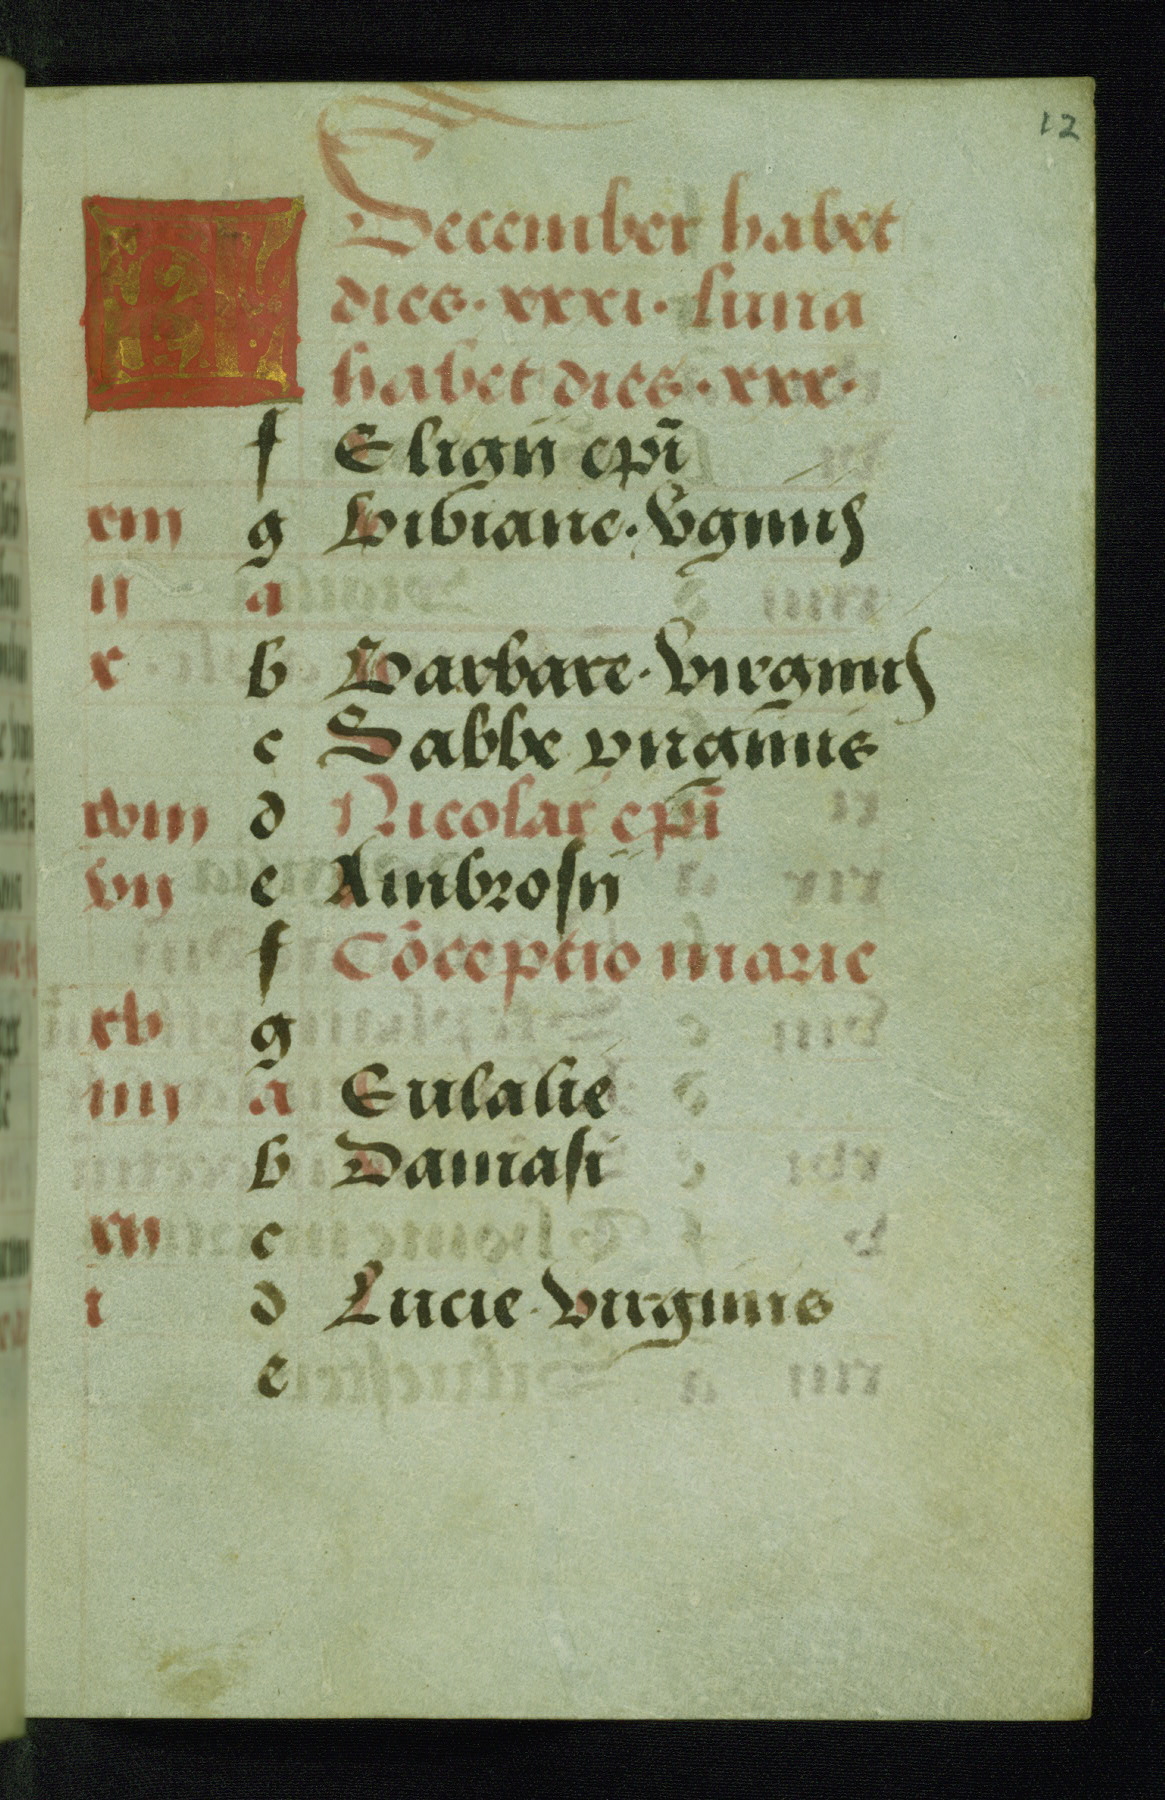 12
KL December habet
dies · xxxi · luna
habet dies · xxx ·
f Eligii ep̄i
xiii g Bibiane · Vgīnis
ii a
x b Barbare · Virginis
c Sabbe virginis
xviii d Nicolai ep̄i
vii e Ambrosii
f Cōceptio marie
xv g
iiii a Eulalie
b Damasi
xii c
i d Lucie · Virginis
e